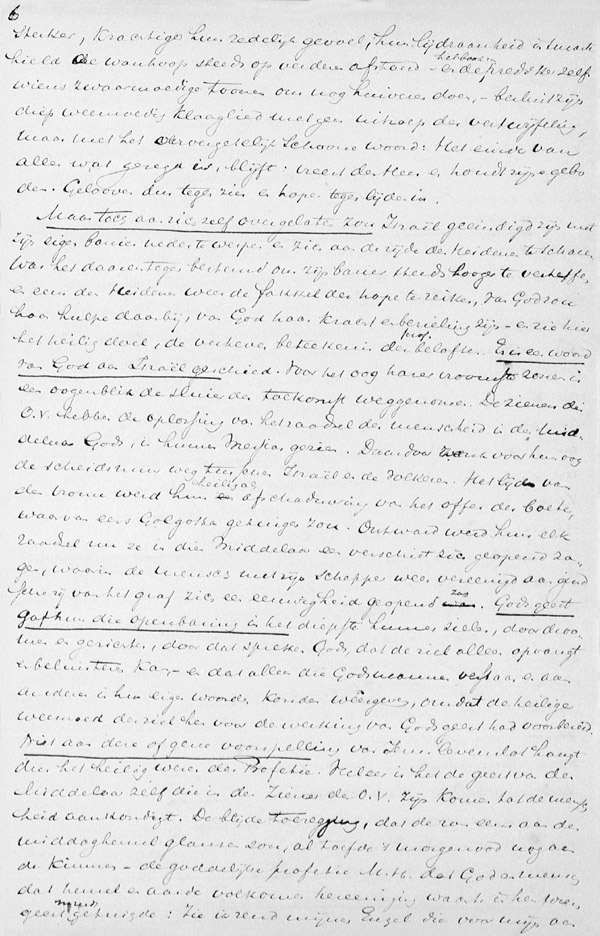 6
Sterker, krachtiger hun zedelijk gevoel, hun lijdzaamheid in smart
hield de wanhoop steeds op verderen afstand en de prediker zelf
wiens zwaarmoedige toonen ons nog huiveren doen, – besluit zijn
diep weemoedig klaaglied met geen uitroep der vertwijfeling,
maar met het onvergetelijk schoone woord: Het einde van
alles wat gezegd is, blijft: vreest den Heer en houdt zijne gebo
den. Gelooven dus tegen zien en hopen tegen lijden in.
Maar toch aan zich zelf overgelaten zou Israël geëindigd zijn met
zijn eigen banier neder te werpen en zich aan de zijde der Heidenen te scharen
Was het daarentegen bestemd om zijn banier steeds hooger te verheffen
en eens den Heidenen weer de fakkel der hope te reiken, dan God zou
haar hulpe daarbij, van God haar kracht en bezieling zijn – en zie hier
het heilig doel, de verheven beteekenis der prof. beloften. Er is een woord
van God aan Israël geschied. Voor het oog harer vroomste zonen is
een oogenblik de sluier der toekomst weggenomen. De zieners des
O.V. hebben de oplossing van het raadsel der menschheid in den Mid
delaar Gods, in hunnen Messias gezien. Daardoor zonk voor hun oog
de scheidsmuur weg tusschen Israël en de Volkeren. Het lijden van
den vrome werd hun heilige afschaduwing van het offer der boete,
waarvan eens Golgotha getuigen zou. Ontward werd hun elk
raadsel nu ze in dien Middelaar een verschiet zich geopend za
gen, waarin de mensch met zijn Schepper weer vereenigd aan gind
sche zij van het graf zich een eeuwigheid geopend zag. Gods geest
gaf hun die openbaring in het diepst hunner zielen, door droo
men en gezichten, door dat spreken Gods, dat de ziel alleen opvangt
en beluisteren kan – en dat alleen die Godsmannen verstaan en aan
anderen in hun eigen woorden konden weergeven, omdat de heilige
weemoed der ziel hen voor de werking van Gods geest had voorbereid.
Niet aan deze of gene voorspelling van Jezus leven dat hangt
dus het heilig wezen der Profetie. Veeleer is het de geest van den
Middelaar zelf die in de Zieners des O.V. zijn komen tot de mensch
heid aankondigt. De blijde toezegging, dat de zon eens aan den
middaghemel glansen zou, al toefde 's morgenrood nog aan
de kimmen – de goddelijke profetie M.H. dat God en mensch,
dat hemel en aarde volkomen hereeniging wachtte is hen
geest getuigde: Zie ik zend mijnen Engel die voor mijn aan